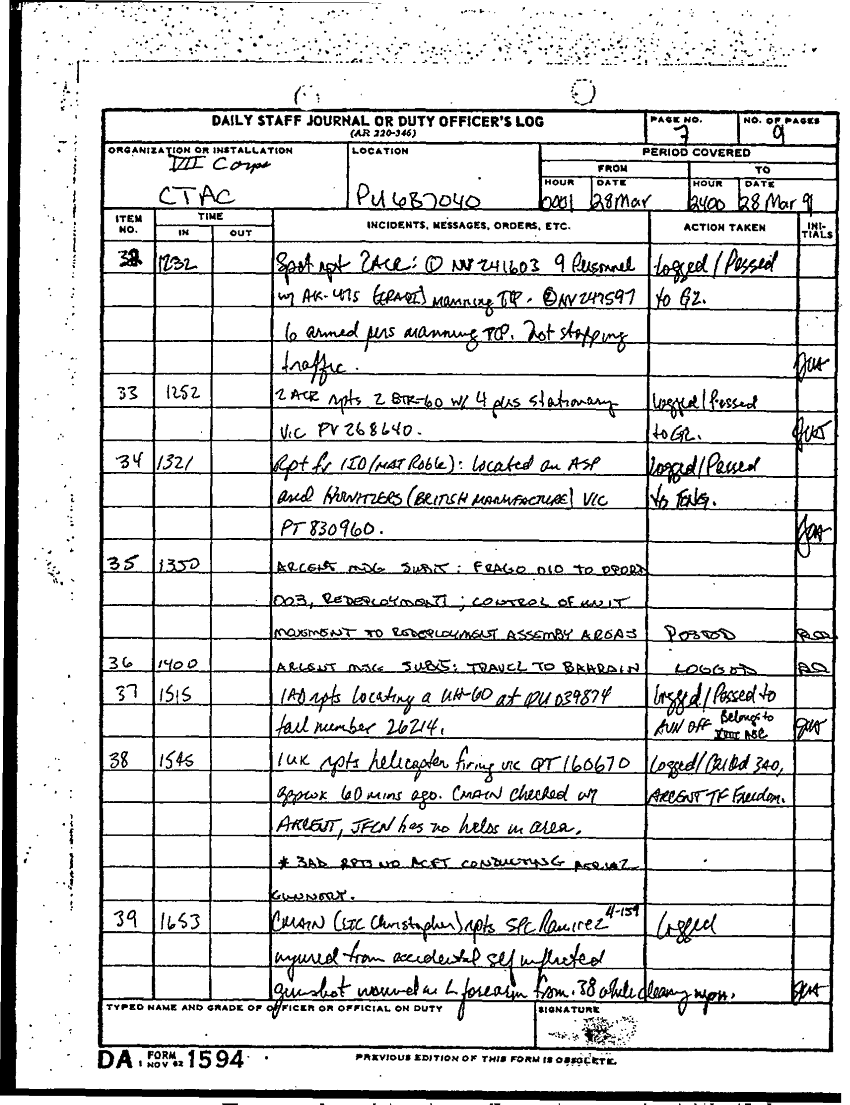 DAILY STAFF JOURNAL OR DUTY OFFICER'S LOG
(AR 220-346)
PAGE NO.
7
NO. OF PAGES
9
ORGANIZATION OR INSTALLATION
VII Corps
CTAC
LOCATION
PU687040
PERIOD COVERED
FROM
TO
HOUR
0001
DATE
28 Mar
HOUR
2400
DATE
28 Mar 91
ITEM NO.
TIME
IN
OUT
INCIDENTS, MESSAGES, ORDERS, ETC.
ACTION TAKEN
INITIALS
32 1232 Spot rpt 2ACR: ① NV 241603 9 Personnel Logged / Passed
w/ AK-47s manning TCP. ② NV 247597 to G2.
6 armed pers manning TCP. Not stopping
traffic.
33 1252 2 ACR rpts 2 BTR-60 w/ 4 pers stationary Logged / Passed
vic PV 268640. to G2.
34 1321 Rpt fr 1ID: located an ASP Logged / Passed
and HOWITZERS (BRITISH MANUFACTURE) VIC to ENG.
PT 830960.
35 1350 ARCENT MSG SUBJ: FRAGO 010 TO OPORD
003, REDEPLOYMENT; CONTROL OF UNIT
MOVEMENT TO REDEPLOYMENT ASSEMBLY AREAS POSTED
36 1400 ARCENT MSG SUBJ: TRAVEL TO BAHRAIN LOGGED
37 1515 1AD rpts locating a UH-60 at PU 039874 Logged / Passed to
tail number 26214. AVN OFF Belongs to XVIII ABC
38 1545 1UK rpts helicopter firing vic QT 160670 Logged / Called 3AD,
approx 60 mins ago. CMAIN checked w/ ARCENT TF Freedom.
ARCENT, JFCN has no helos in area.
* 3AD RPTS NO ACFT CONDUCTING AERIAL
GUNNERY.
39 1653 CMAIN (LTC Christopher) rpts SPC Ramirez 4-159 Logged
injured from accidental self inflicted
gunshot wound in L forearm from .38 while cleaning wpn.
TYPED NAME AND GRADE OF OFFICER OR OFFICIAL ON DUTY
SIGNATURE
DA FORM 1 NOV 62 1594
PREVIOUS EDITION OF THIS FORM IS OBSOLETE.